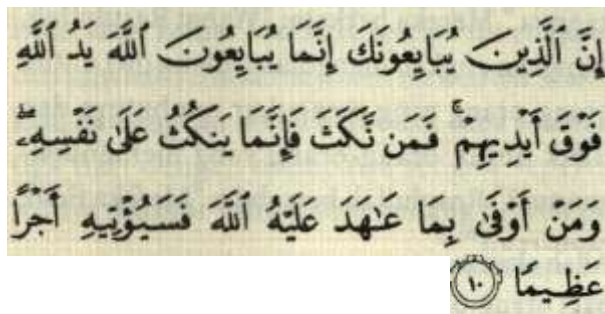 إِنَّ ٱلَّذِينَ يُبَايِعُونَكَ إِنَّمَا يُبَايِعُونَ ٱللَّهَ يَدُ ٱللَّهِ
فَوْقَ أَيْدِيهِمْ ۚ فَمَن نَّكَثَ فَإِنَّمَا يَنكُثُ عَلَىٰ نَفْسِهِۦ ۖ
وَمَنْ أَوْفَىٰ بِمَا عَـٰهَدَ عَلَيْهُ ٱللَّهَ فَسَيُؤْتِيهِ أَجْرًا
عَظِيمًا ١٠